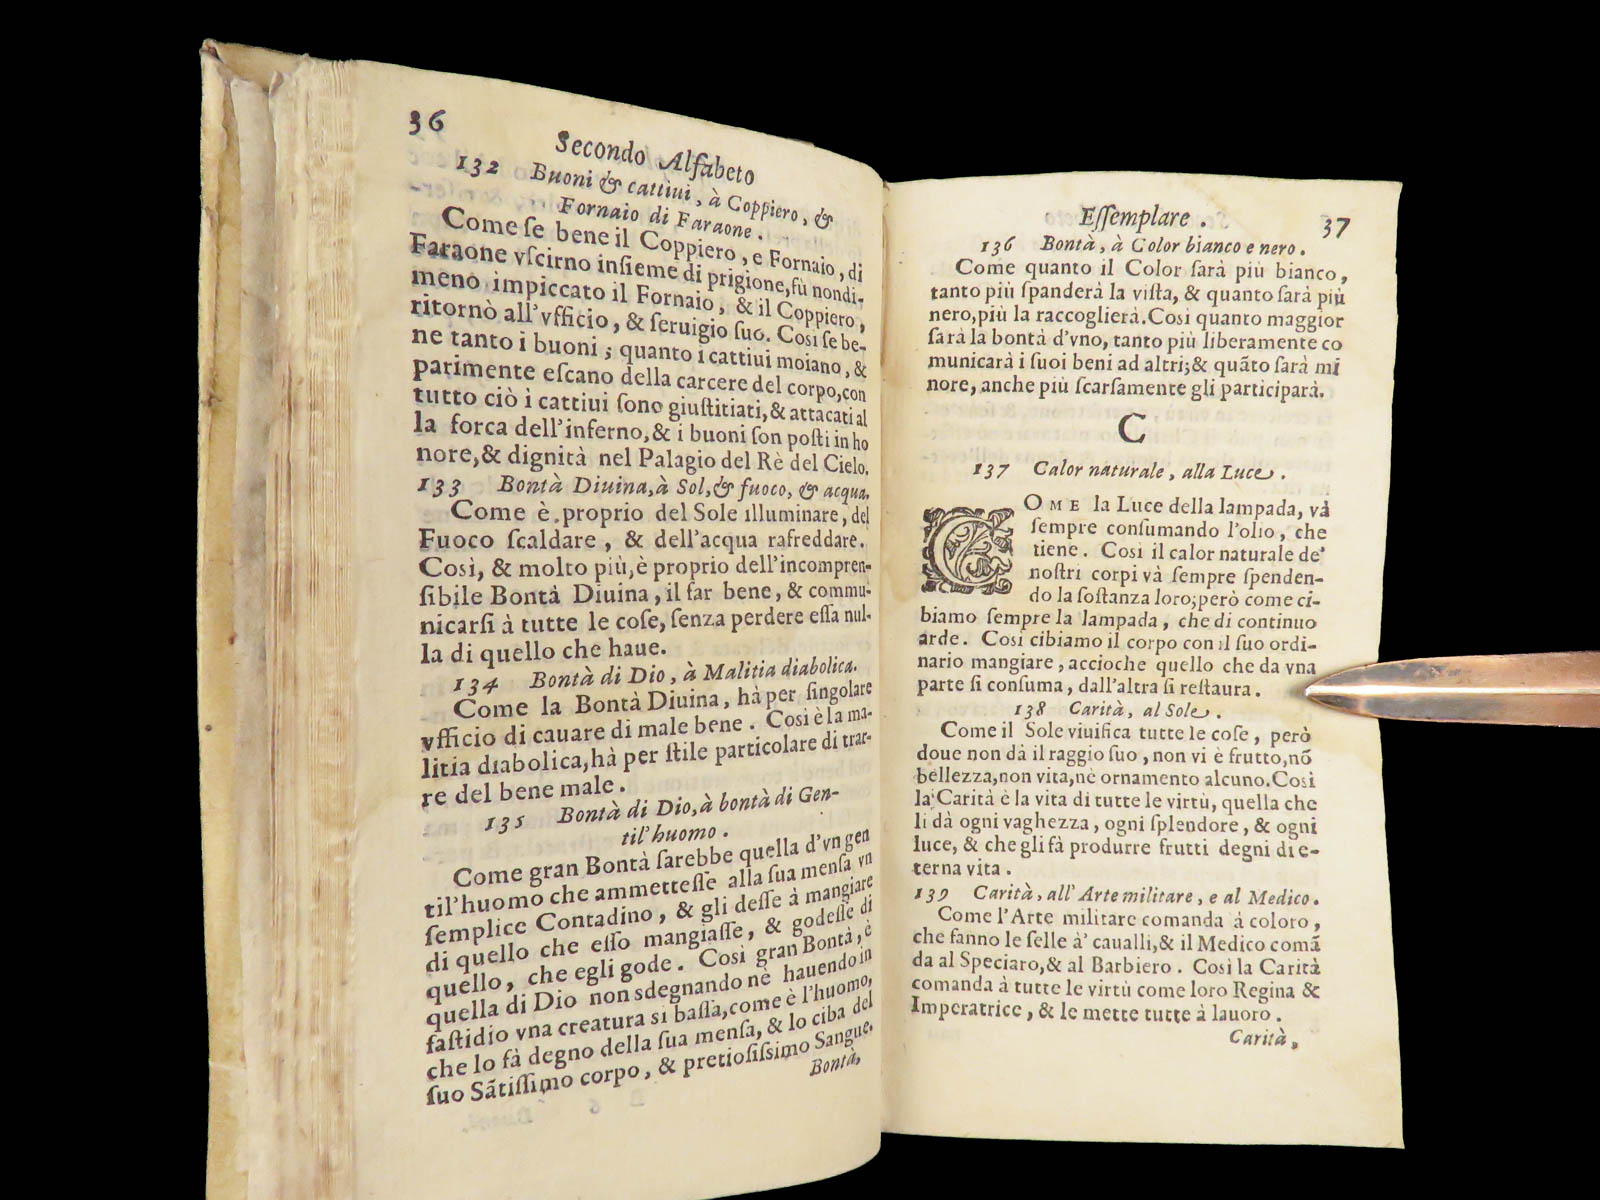 36
Secondo Alfabeto
132 Buoni & cattiui, à Coppiero, &
Fornaio di Faraone.
Come se bene il Coppiero, e Fornaio, di
Faraone vſcirno inſieme di prigione, fù nondi-
meno impiccato il Fornaio, & il Coppiero,
ritornò all'vfficio, & ſeruigio ſuo. Cosi ſe be-
ne tanto i buoni; quanto i cattiui moiano, &
parimente eſcano della carcere del corpo, con
tutto ciò i cattiui ſono giuſtitiati, & attacati al
la forca dell'inferno, & i buoni ſon poſti in ho
nore, & dignità nel Palagio del Rè del Cielo.
133 Bontà Diuina, à Sol, & fuoco, & acqua.
Come è proprio del Sole illuminare, del
Fuoco ſcaldare, & dell'acqua rafreddare.
Così, & molto più, è proprio dell'incompren-
ſibile Bontà Diuina, il far bene, & commu-
nicarſi à tutte le coſe, ſenza perdere eſſa nul-
la di quello che haue.
134 Bontà di Dio, à Malitia diabolica.
Come la Bontà Diuina, hà per ſingolare
vfficio di cauare di male bene. Cosi è la ma-
litia diabolica, hà per ſtile particolare di trar-
re del bene male.
135 Bontà di Dio, à bontà di Gen-
til'huomo.
Come gran Bontà ſarebbe quella d'vn gen
til'huomo che ammetteſſe alla ſua menſa vn
ſemplice Contadino, & gli deſſe à mangiare
di quello che eſſo mangiaſſe, & godeſſe di
quello, che egli gode. Così gran Bontà, è
quella di Dio non sdegnando nè hauendo in
faſtidio vna creatura si baſſa, come è l'huomo,
che lo fà degno della ſua menſa, & lo ciba del
ſuo Sãtiſſimo corpo, & pretioſiſsimo Sangue.
Bontà,
Eſſemplare.
37
136 Bontà, à Color bianco e nero.
Come quanto il Color ſarà più bianco,
tanto più ſpanderà la viſta, & quanto ſarà più
nero, più la raccoglierà. Cosi quanto maggior
ſarà la bontà d'vno, tanto più liberamente co
municarà i ſuoi beni ad altri; & quãto ſarà mi
nore, anche più ſcarſamente gli participarà.
C
137 Calor naturale, alla Luce.
COME la Luce della lampada, và
ſempre conſumando l'olio, che
tiene. Così il calor naturale de'
noſtri corpi và ſempre ſpenden-
do la ſoſtanza loro; però come ci-
biamo ſempre la lampada, che di continuo
arde. Cosi cibiamo il corpo con il ſuo ordi-
nario mangiare, accioche quello che da vna
parte ſi conſuma, dall'altra ſi reſtaura.
138 Carità, al Sole.
Come il Sole viuifica tutte le coſe, però
doue non dà il raggio ſuo, non vi è frutto, nõ
bellezza, non vita, nè ornamento alcuno. Così
la Carità è la vita di tutte le virtù, quella che
li dà ogni vaghezza, ogni ſplendore, & ogni
luce, & che gli fà produrre frutti degni di e-
terna vita.
139 Carità, all'Arte militare, e al Medico.
Come l'Arte militare comanda à coloro,
che fanno le ſelle à' caualli, & il Medico comã
da al Speciaro, & al Barbiero. Cosi la Carità
comanda à tutte le virtù come loro Regina &
Imperatrice, & le mette tutte à lauoro.
Carità,